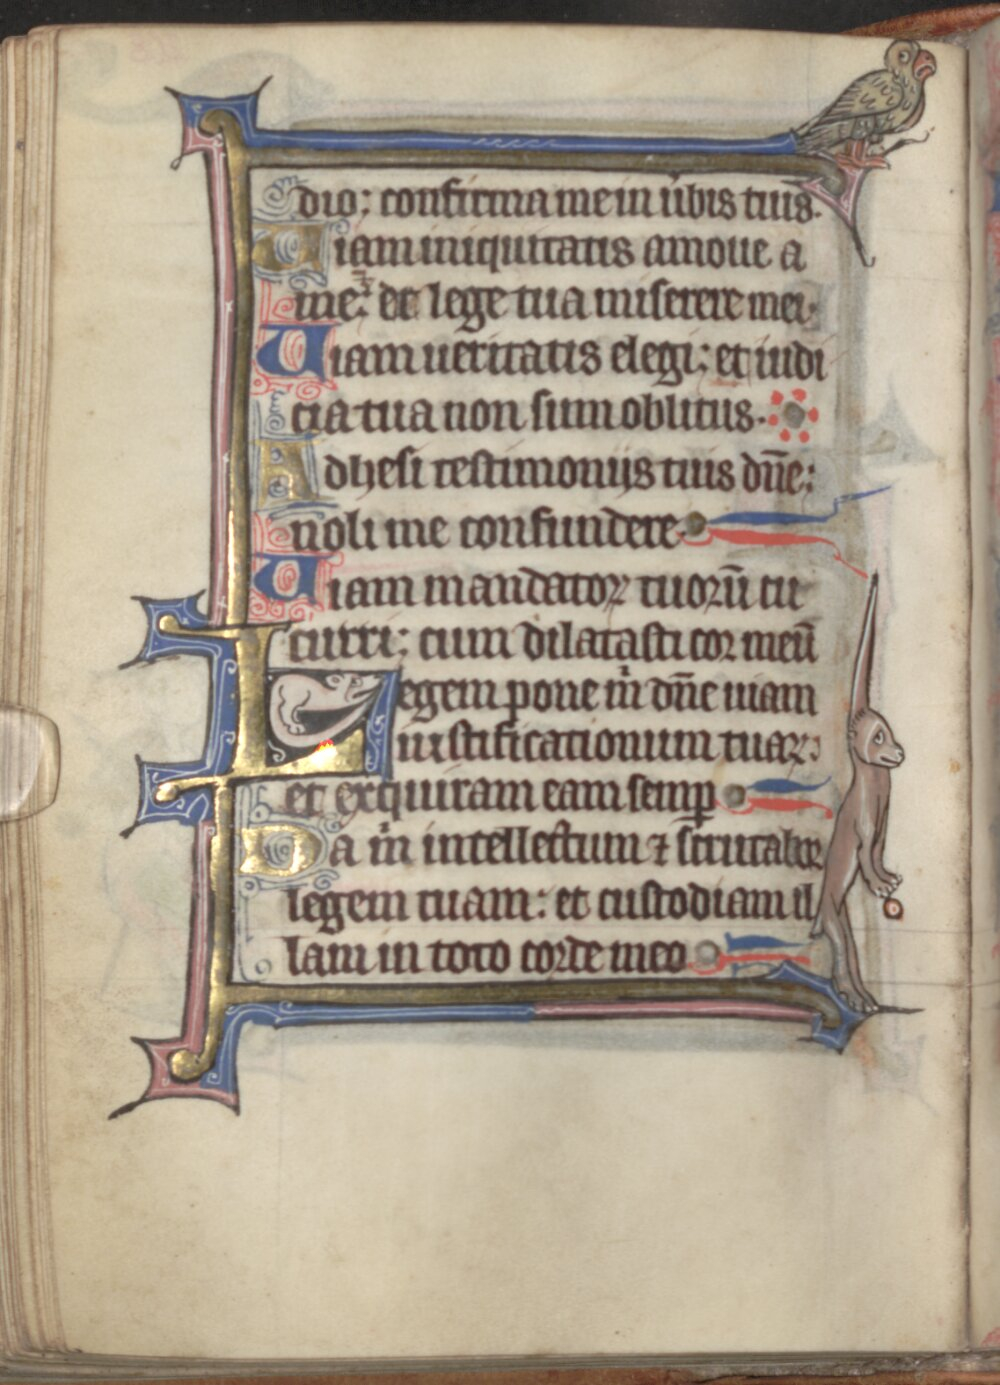 dio: confirma me in űbis tuis.
Uiam iniquitatis amoue a
me: et de lege tua miserere mei.
Uiam ueritatis elegi: et iudi
cia tua non sum oblitus.
Adhesi testimoniis tuis dn̄e:
noli me confundere.
Uiam mandatoꝝ tuoꝛū cu
curri: cum dilatasti coꝛ meū
Legem pone m̍ dn̄e uiam
iustificationum tuaꝝ:
et exquiram eam semꝑ
Da m̍ intellectum ⁊ scrutaboꝛ
legem tuam: et custodiam il
lam in toto coꝛde meo